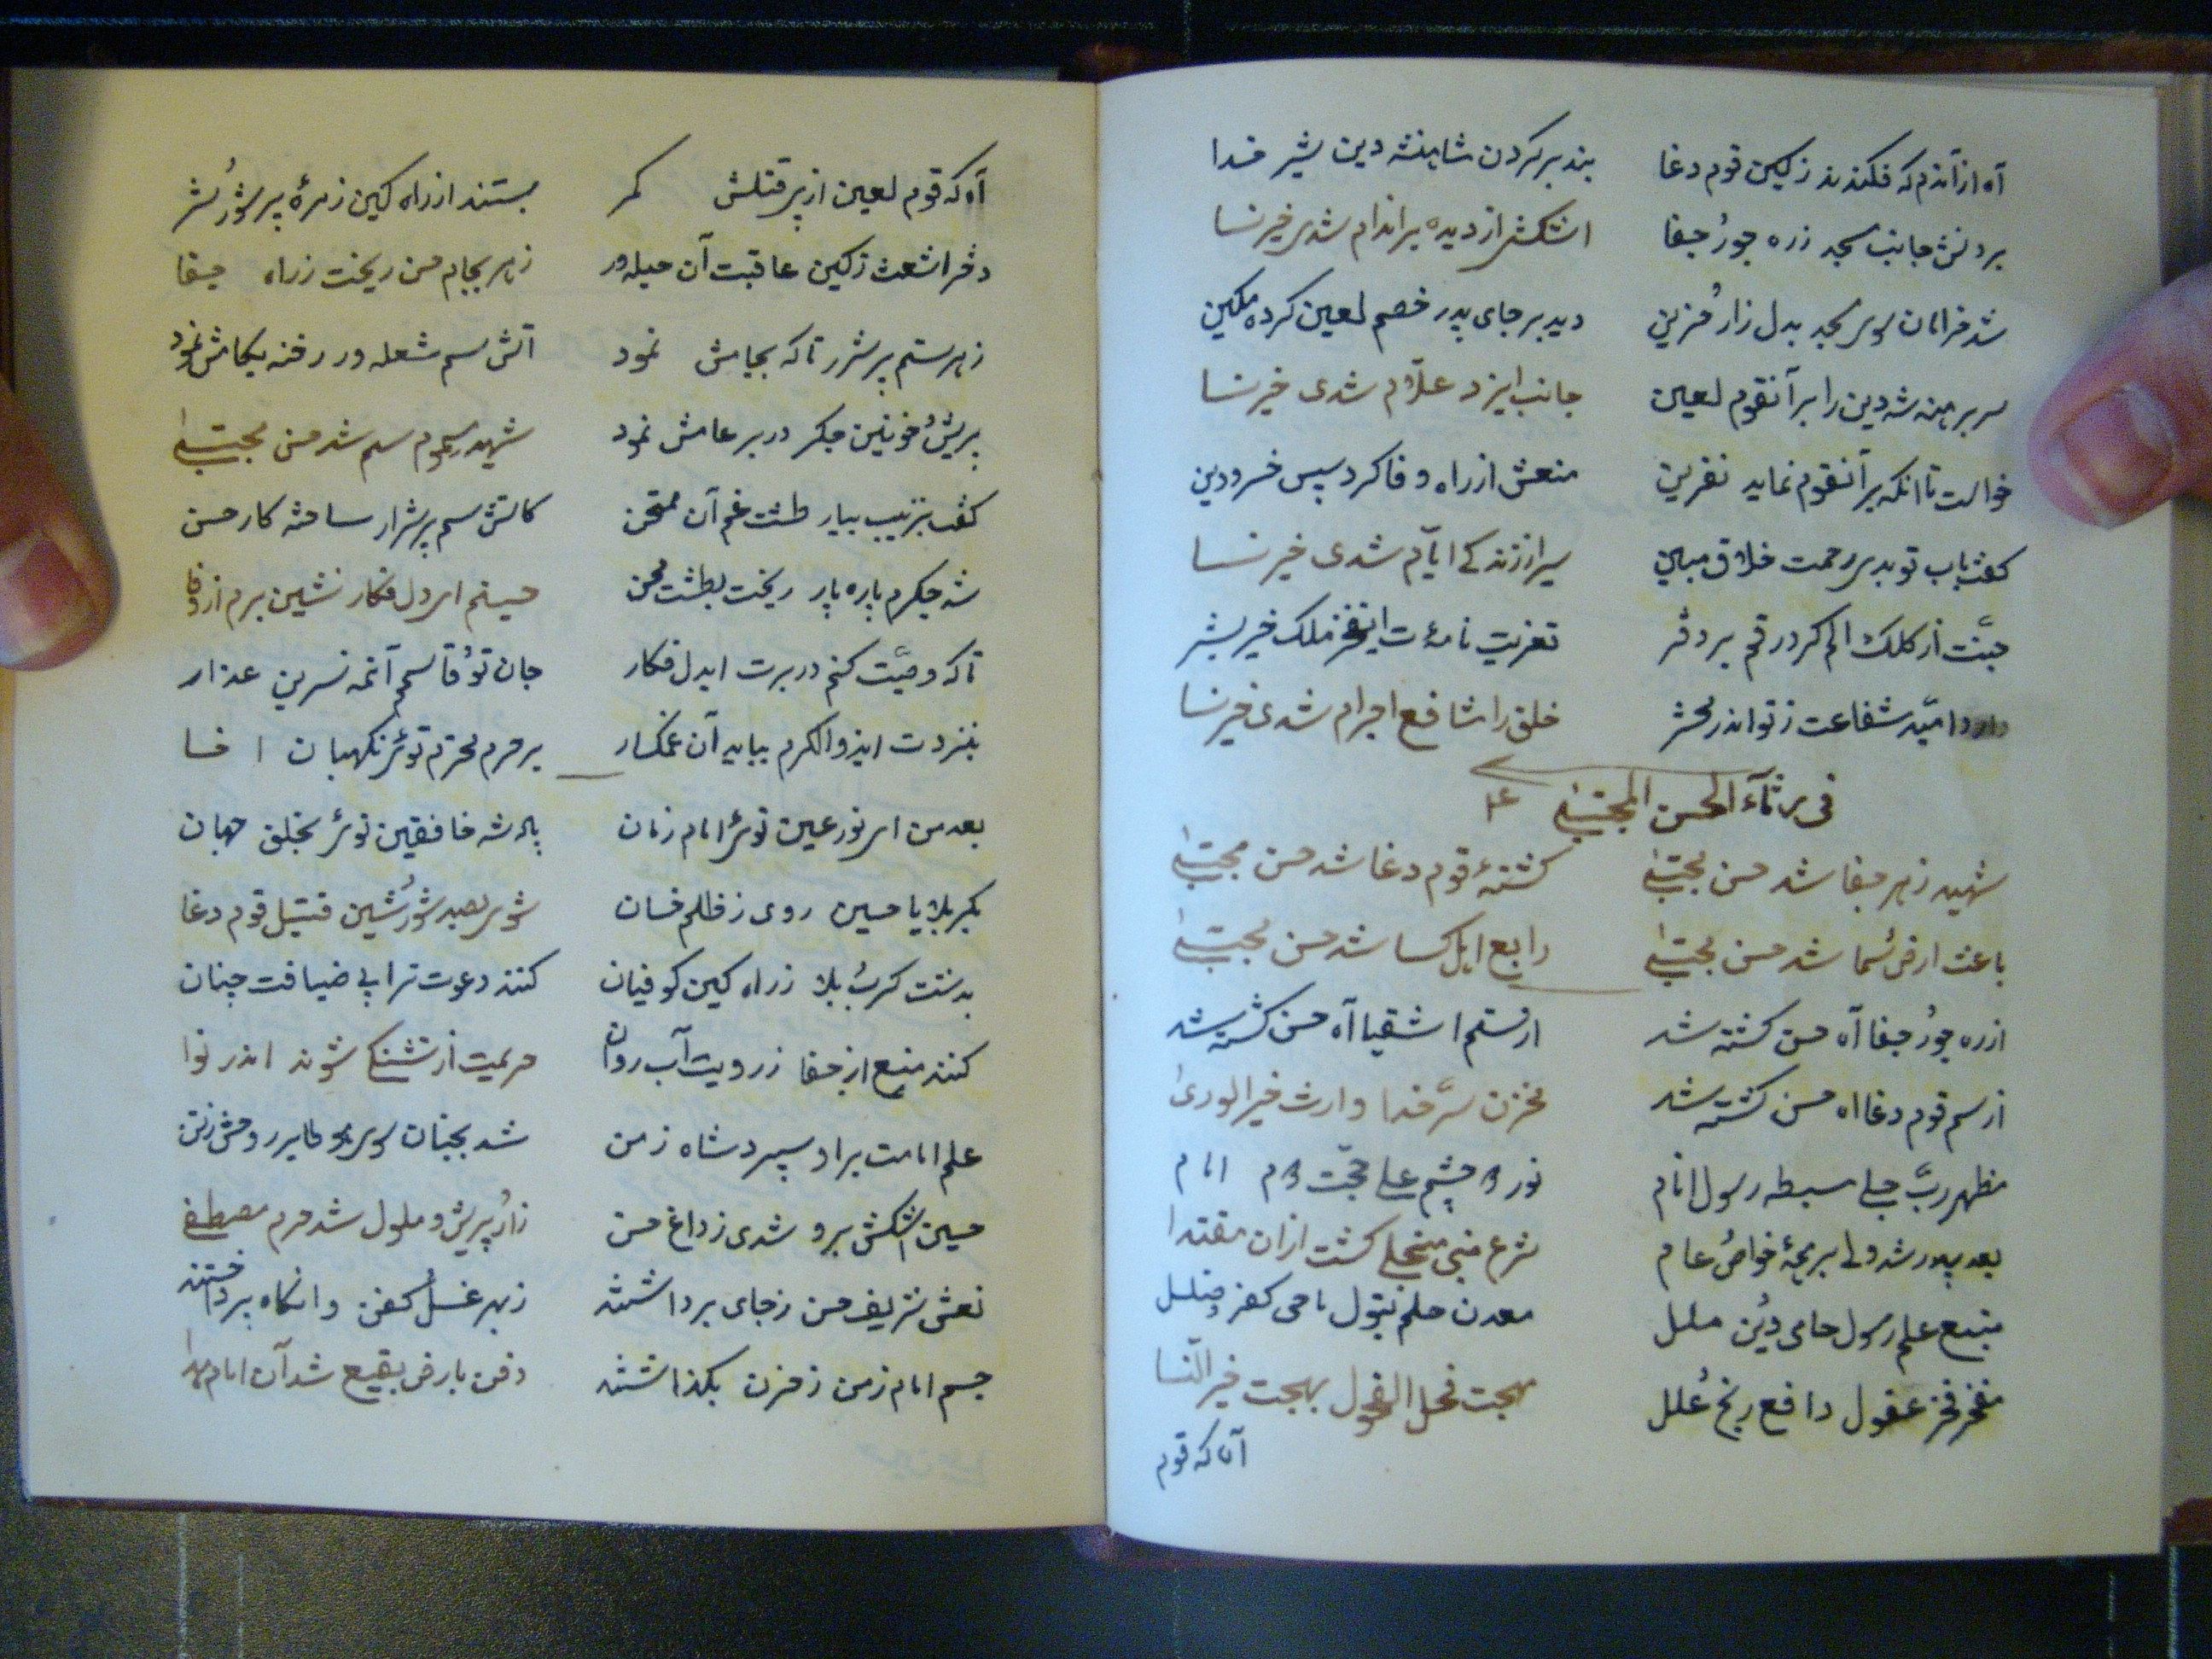 آه ازآندم که فکندند ز کین قوم دغا بند بر گردن شاهنشه دین شیر خدا
بردنش جانب مسجد زره جور و جفا اشکش از دیده بر اندام شدی خیر نسا
شد خرامان سوی مسجد بدل زار و حزین دید بر جای پدر خصم لعین کرده مکین
سر برهنه شه دین را بر آنقوم لعین جانب ایزد علّام شدی خیر نسا
خواست تا انکه بر آنقوم نماید نفرین منعش از راه وفا کرد سپس خسرو دین
گفت باب تو بدی رحمت خلاق مبین سیر از زندگی ایّام شدی خیر نسا
جنّت از کلک الم کرد رقم بر دفتر تعزیت نامهٔ ت ایفخر ملک خیر بشر
دارد امیّد شفاعت ز تو اندر محشر خلق را شافع اجرام شدی خیر نسا
فی مرثاء الحسن المجتبی ع
شهید زهر جفا شد حسن مجتبی کشتهٔ قوم دغا شد حسن مجتبی
باعث ارض و سما شد حسن مجتبی رابع اهل کسا شد حسن مجتبی
ازره جور و جفا آه حسن کشته شد از ستم اشقیا آه حسن کشته شد
از سم قوم دغا اه حسن کشته شد مخزن سرّ خدا وارث خیر الوری
مظهر ربّ جلی سبط رسول انام نور دو چشم علی حجّت دوم امام
بعد پدر شد ولی بر همهٔ خواص و عام شرع نبی منجلی گشت ازان مقتدا
منبع علم رسول حامی دین و ملل معدن حلم بتول ماحی کفر و ضلل
مفخر فخر عقول دافع رنج و علل بهجت فحل الفحول مهجت خیر النّسا
آه که قوم
آه که قوم لعین از پی قتلش کمر ببستند از راه کین زمرهٔ پر شور و شر
دختر اشعث ز کین عاقبت آن حیله ور زهر بجام حسن ریخت ز راه جفا
زهر ستم پر شرر تا که بجامش نمود آتش سم شعله ور رخنه بکامش نمود
پریش و خونین جگر در بر عامش نمود شهید مسموم سم شد حسن مجتبی
گفت بزینب بیار طشت غم آن ممتحن کاتش سم پر شرار ساخته کار حسن
شد جگرم پاره پار ریخت بطشت محن حسینم ای دل فکار نشین برم از وفا
تا که وصیّت کنم در برت ایدل فکار جان تو و قاسم آنمه نسرین عذار
بنزدت این ذو الکرم بباید آن غمگسار بر حرم محترم توئی نگهبان اخا
بعد من ای نور عین توئی امام زمان پادشه خافقین توئی بخلق جهان
بکربلا یا حسین روی ز ظلم خسان شوی بصد شور و شین قتیل قوم دغا
بدشت کرب و بلا ز راه کین کوفیان کنند دعوت ترا پی ضیافت چنان
کنند منع از جفا ز رویت آب روان حریمت از تشنگی شوند اندر نوا
علم امامت براو سپرد شاه زمن شد بجنان سوی هو طایر روحش ز تن
حسین اشکش برو شدی ز داغ حسن زار و پریش و ملول شد حرم مصطفی
نعش شریف حسن ز جای برداشتند زبهر غسل و کفن وانگاه پرداختند
جسم امام زمن ز حزن بگذاشتند دفن بارض بقیع شد آن امام هدا